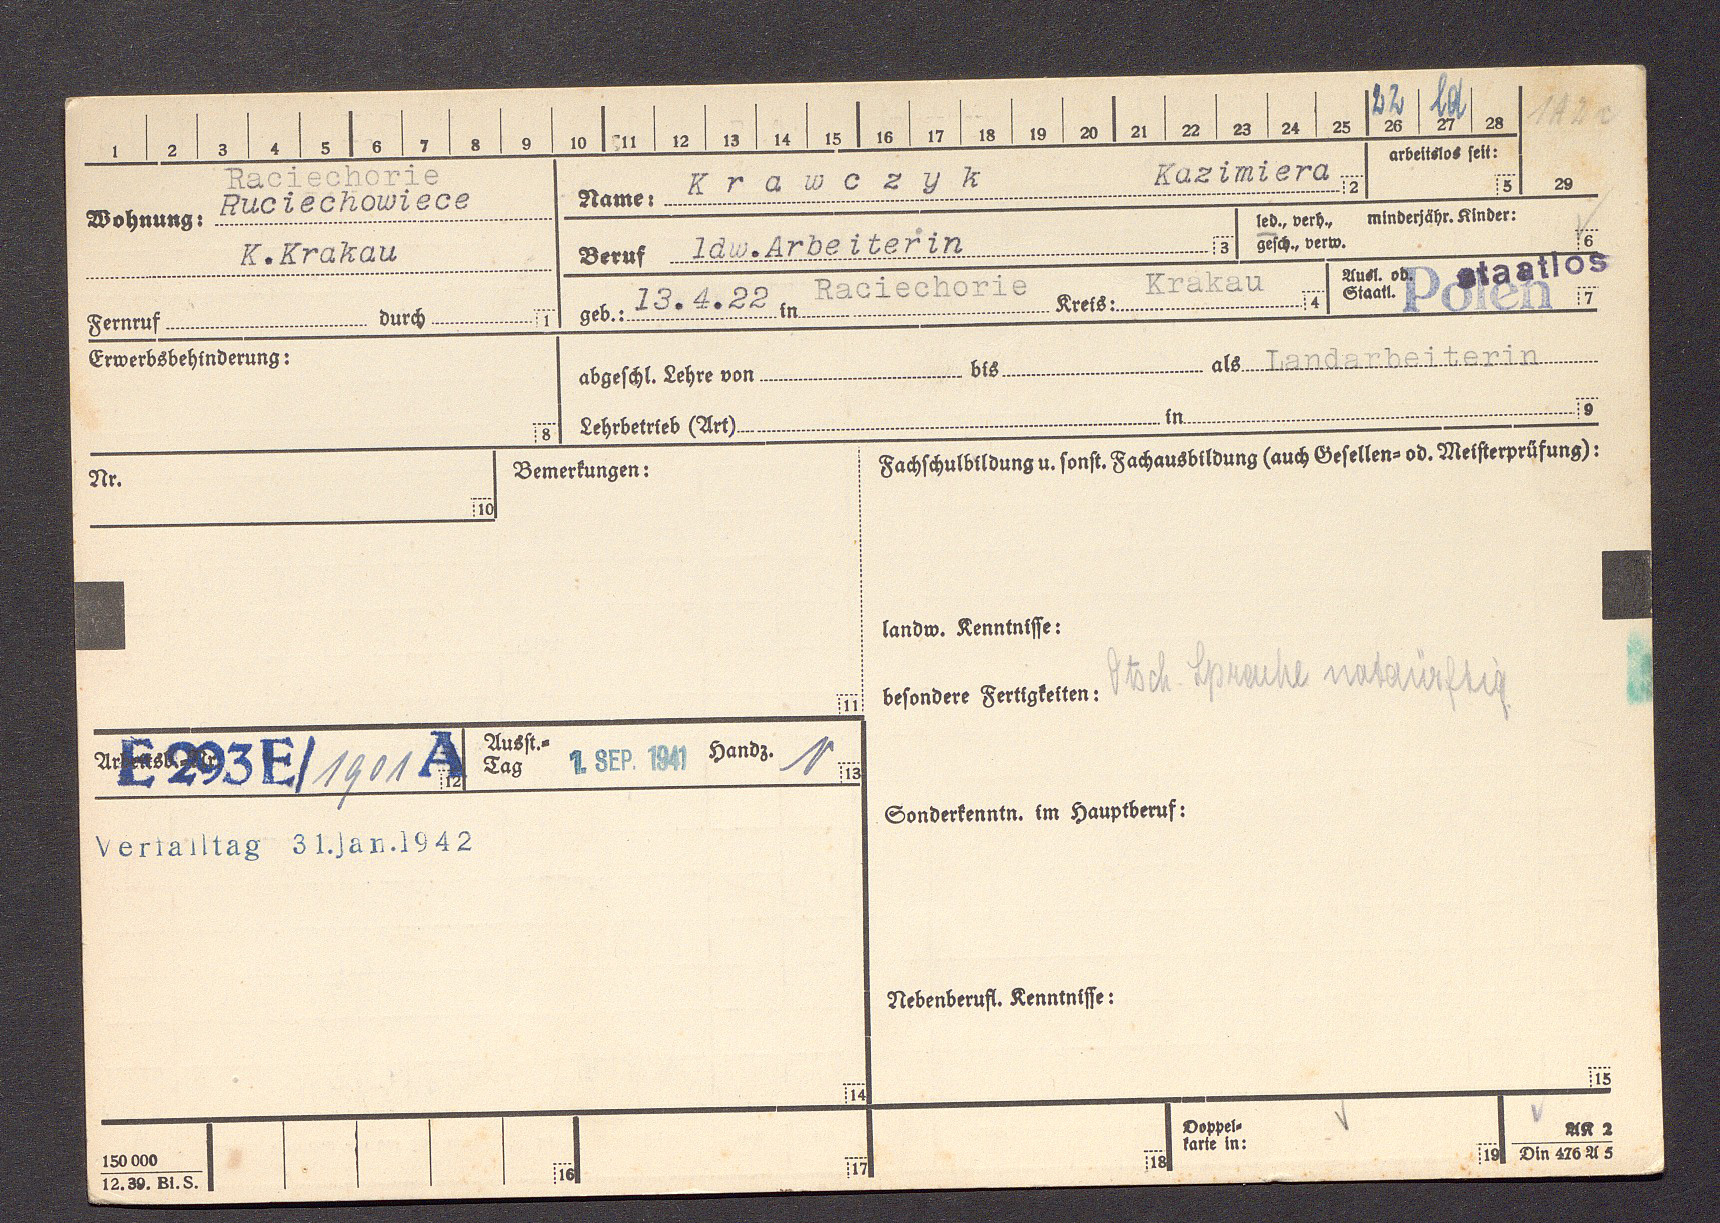 22 ld
1 2 3 4 5 6 7 8 9 10 11 12 13 14 15 16 17 18 19 20 21 22 23 24 25 26 27 28 29
142 c
Raciechorie
Wohnung: Ruciechowiece
K.Krakau
Fernruf durch 1
Name: Krawczyk Kazimiera 2
arbeitslos seit: 5
Beruf ldw.Arbeiterin 3
led., verh., minderjähr. Kinder:
gesch., verw. 6
geb.: 13.4.22 in Raciechorie Kreis: Krakau 4
Ausl. od. Staatl. Polen staatlos 7
Erwerbsbehinderung: 8
abgeschl. Lehre von bis als Landarbeiterin
Lehrbetrieb (Art) in 9
Nr. 10
Bemerkungen: 11
Fachschulbildung u. sonst. Fachausbildung (auch Gesellen= od. Meisterprüfung):
landw. Kenntnisse:
besondere Fertigkeiten: Dtsch. Sprache notdürftig
Arbeitsb.-Nr. E 293 E/1901 A 12
Ausst.= Tag 1. SEP. 1941 Handz. 13
Verfalltag 31.Jan.1942
14
Sonderkenntn. im Hauptberuf:
Nebenberufl. Kenntnisse:
15
150 000
12. 39. Bl. S.
16
17
18
Doppel=
karte in: 19
AK 2
Din 476 A 5